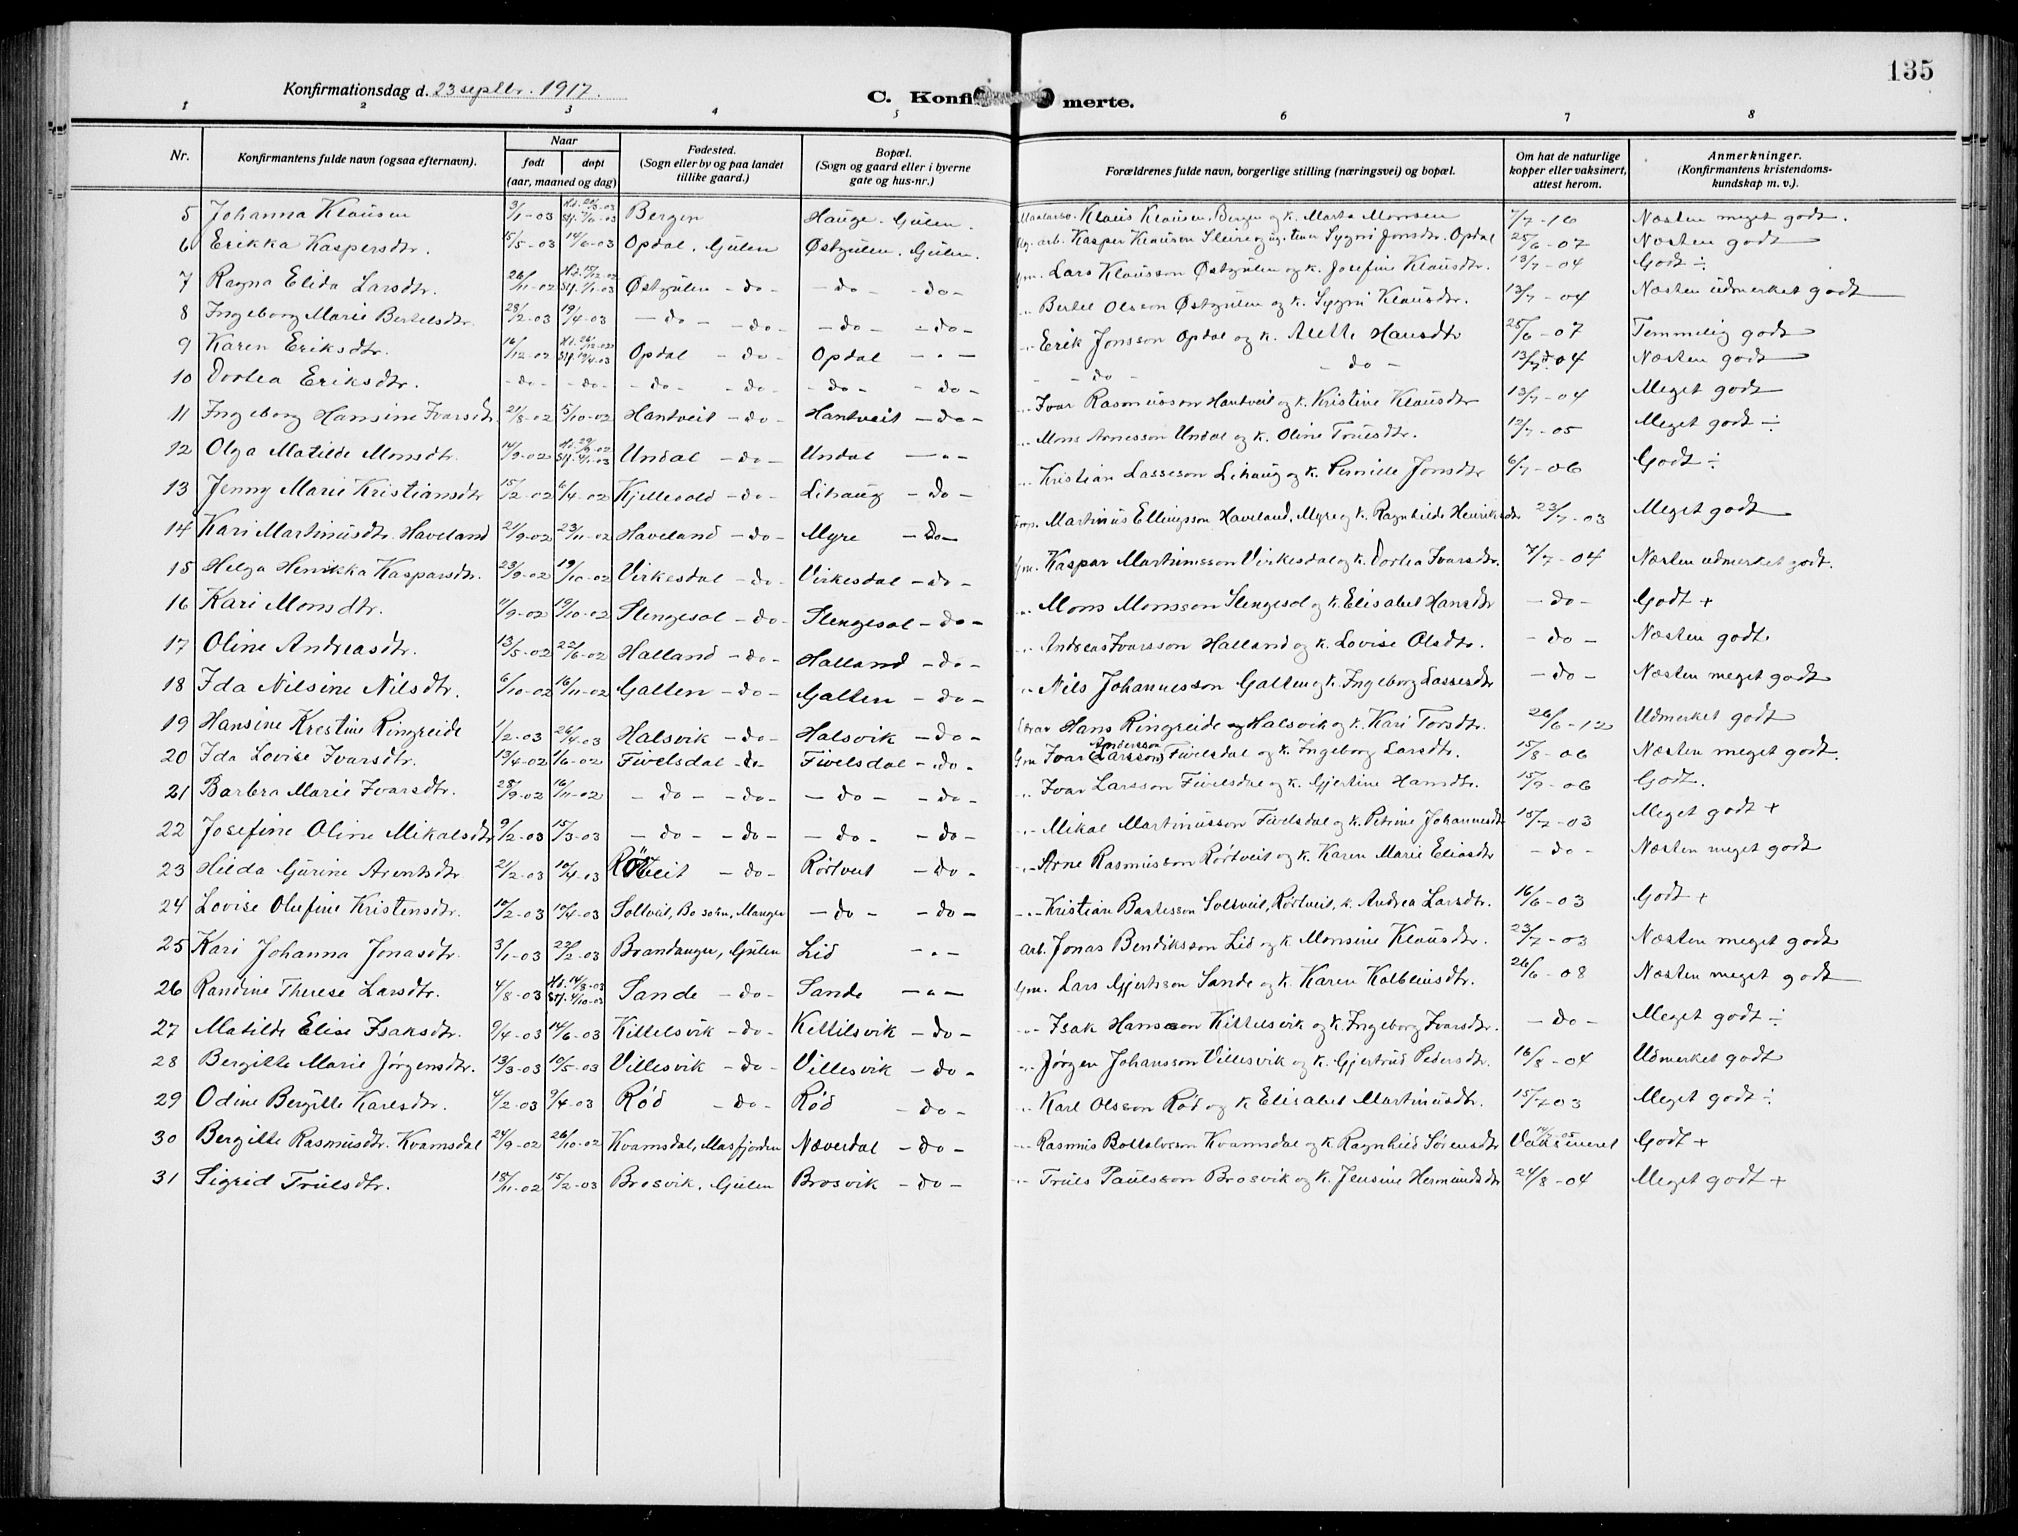 135
Konfirmationsdag d. 23 septbr. 1917.
C. Konfi merte.
1 2 3 4 5 6 7 8
Nr. Konfirmantens fulde navn (ogsaa efternavn). Naar født døpt (aar, maaned og dag) Fødested. (Sogn eller by og paa landet tillike gaard.) Bopæl. (Sogn og gaard eller i byerne gate og hus-nr.) Forældrenes fulde navn, borgerlige stilling (næringsvei) og bopæl. Om hat de naturlige kopper eller vaksinert, attest herom. Anmerkninger. (Konfirmantens kristendoms-kundskap m. v.).
5 Johanna Klausen 3/1-03 Bergen Hauge. Gulen. Klaus Klausen, Bergen og k. Marta Monsen 7/7-10 Næsten meget godt.
6 Erikka Kaspersdtr. 15/5-03 14/6-03 Opdal. Gulen Østgulen. Gulen. arb. Kasper Klausen Sleire og ug. tener Sygni Jonsdtr. Opdal 25/6-07 Næsten godt
7 Ragna Elida Larsdtr. 26/11-02 Hd. 15/12-02 Stf. 1/1-03 Østgulen -do- -do- -do- Gm. Lars Klausson Østgulen og k. Josefine Klausdtr. 13/7-04 Godt ÷
8 Ingeborg Marie Bertelsdtr. 28/2-03 19/4-03 -do- -do- -do- -do- „ Bertel Olsson Østgulen og k. Sygni Klausdtr. 13/7-04 Næsten udmerket godt
9 Karen Eriksdtr. 16/12-02 Hd. 26/12-02 Stf. 19/4-03 Opdal -do- Opdal -„- „ Erik Jonsson Opdal og k. Alette Hansdtr 25/6-07 Temmelig godt
10 Dortea Eriksdtr. -do- -do- -do- -do- -do- -do- -do- -do- 13/7-04 Næsten godt
11 Ingeborg Hansine Ivarsdtr 21/8-02 5/10-02 Hantveit -do- Hantveit -do- „ Ivar Rasmusson Hantveit og k. Kristine Klausdtr 13/7-04 Meget godt
12 Olga Matilde Monsdtr. 14/9-02 Undal -do- Undal -„- „ Mons Arnesson Undal og k. Oline Truesdtr. 12/7-05 Meget godt ÷
13 Jenny Marie Kristiansdtr 15/12-02 6/4-02 Kjellevold -do- Lihaug -do- „ Kristian Lasseson Lihaug og k. Pernille Jonsdtr 6/7-06 Godt ÷
14 Kari Martinusdtr. Haveland 21/9-02 23/11-02 Haveland -do- Myre -do- Martinus Ellingsson Haveland, Myre og k. Ragnhilde Henriksdtr 23/7-03 Meget godt
15 Helga Henikka Kasparsdtr. 23/9-02 19/10-02 Virkesdal -do- Virkesdal -do- Gm. Kaspar Martinusson Virkesdal og k. Dortea Ivarsdtr. 7/7-04 Næsten udmerket godt.
16 Kari Monsdtr. 11/9-02 19/10-02 Slengesol -do- Slengesol -do- „ Mons Monsson Slengesol og k. Elisabet Hansdtr -do- Godt +
17 Oline Andreasdtr. 13/5-02 22/6-02 Halland -do- Halland -do- „ Andreas Ivarsson Halland og k. Lovise Olsdtr. -do- Næsten godt.
18 Ida Nilsine Nilsdtr. 6/10-02 16/11-02 Galten -do- Galten -do- „ Nils Johannesson Galten og k. Ingeborg Lassesdtr -do- Næsten meget godt
19 Hansine Krestine Ringreide 1/2-03 26/4-03 Halsvik -do- Halsvik -do- Hans Ringreide og Halsvik og k. Kari Torsdtr. 26/6-12 Udmerket godt
20 Ida Lovise Ivarsdtr. 13/4-02 1/6-02 Fivelsdal -do- Fivelsdal -do- Gm Ivar Andersson (Larsson) Fivelsdal og k. Ingeborg Larsdtr. 15/8-06 Næsten meget godt.
21 Barbra Marie Ivarsdtr. 28/9-02 16/11-02 -do- -do- -do- -do- „ Ivar Larsson Fivelsdal og k. Gjertine Hansdtr. 15/9-06 Godt.
22 Josefine Oline Mikalsdtr 9/2-03 15/3-03 -do- -do- -do- -do- „ Mikal Martinusson Fivelsdal og k. Petrine Johannesdtr 15/7-03 Meget godt +
23 Hilda Gurine Arentsdtr 21/2-03 10/4-03 Rörtveit -do- Rörtveit -do- „ Arne Rasmusson Rörtveit og k. Karen Marie Eliasdtr -do- Næsten meget godt
24 Lovise Olufine Kristensdtr. 10/2-03 10/4-03 Soltveit, Bo sokn, Manger -do- -do- „ Kristian Bastesson Soltveit, Rörtveit, k. Andrea Larsdtr. 16/6-03 Godt +
25 Kari Johanna Jonasdtr. 3/1-03 22/2-03 Brandanger, Gulen Lid -„- arb. Jonas Bendiksson Lid og k. Monsine Klausdtr. 23/7-03 Næsten meget godt
26 Randine Therese Larsdtr. 4/8-03 Hd. 14/8-03 Stf. 4/10-03 Sande -do- Sande -„- Gm. Lars Gjertsson Sande og k. Karen Kolbeinsdtr. 26/6-08 Næsten meget godt
27 Matilde Elise Isaksdtr. 9/4-03 14/6-03 Kittelsvik -do- Kettilsvik -do- „ Isak Hansson Kittelsvik og k. Ingeborg Ivarsdtr. -do- Meget godt ÷
28 Bergitte Marie Jørgensdtr. 13/3-03 10/5-03 Villesvik -do- Villesvik -do- „ Jørgen Johansson Villesvik og k. Gjertrud Pedersdtr. 16/8-04 Udmerket godt
29 Odine Bergitte Karlsdtr. 4/2-03 9/4-03 Rød -do- Rød -do- „ Karl Olsson Rød og k. Elisabet Martinusdtr. 15/7-03 Meget godt ÷
30 Bergitte Rasmusdtr. Kvamsdal 24/9-02 26/10-02 Kvamsdal, Masfjorden Næverdal -do- „ Rasmus Bottolvsson Kvamsdal og k. Ragnhild Sørensdtr Vaksineret Godt +
31 Sigrid Trulsdtr. 18/11-02 15/2-03 Brosvik, Gulen Brosvik -do- „ Truls Paulsson Brosvik og k. Jensine Hermundsdtr 24/8-04 Meget godt +